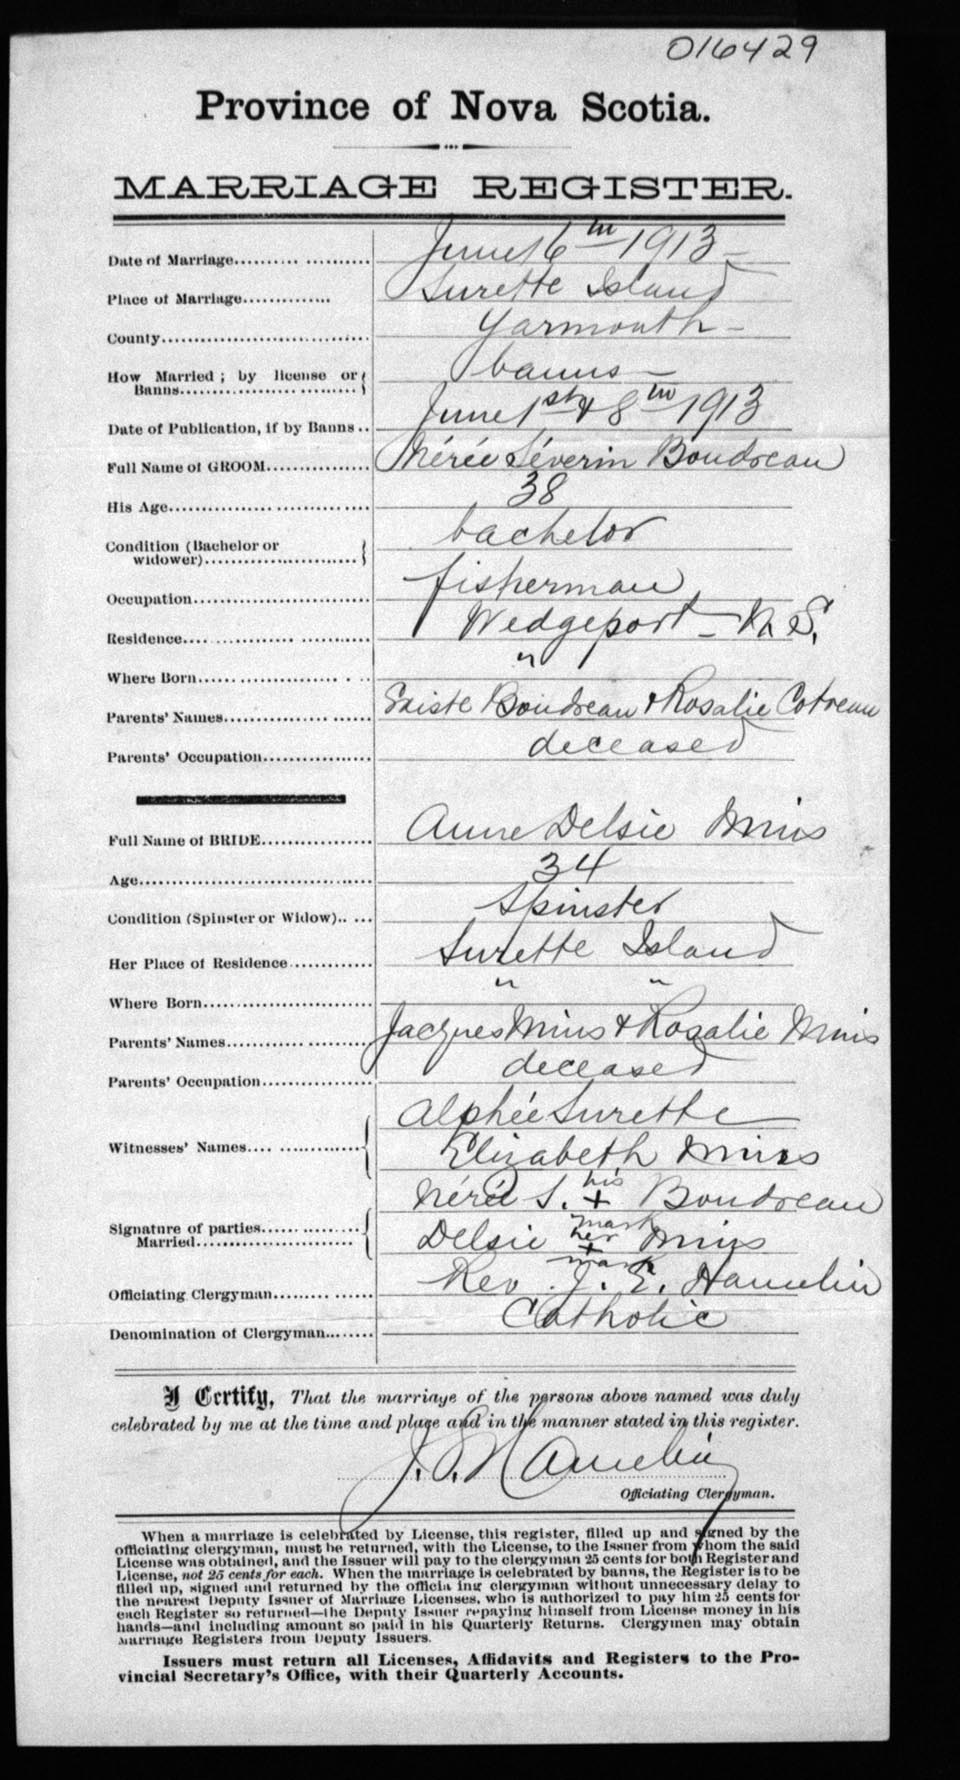 016429
Province of Nova Scotia.
MARRIAGE REGISTER.
Date of Marriage.......... ........... June 16th 1913 –
Place of Marriage.............. Surette Island
County.................................. Yarmouth –
How Married ; by license or
Banns............................ banns –
Date of Publication, if by Banns .. June 1st & 8th 1913
Full Name of GROOM................. Nérée Séverin Boudreau
His Age................................. 38
Condition (Bachelor or
widower)......................... bachelor
Occupation............................. fisherman
Residence... ............ ............ Wedgeport – N. S.
Where Born...................... . ... "
Parents' Names................. ...... Boudreau & Rosalie Cotreau
Parents' Occupation................. deceased
Full Name of BRIDE................. Anne Delsie Mius
Age..................................... 34
Condition (Spinster or Widow).. ... Spinster
Her Place of Residence............. Surette Island
Where Born........................... " "
Parents' Names............ ........... Jacques Mius & Rosalie Mius
Parents' Occupation................. deceased
Witnesses' Names.... .............. Alphée Surette
Elizabeth Mius
Signature of parties............... Nérée S. his + mark Boudreau
Married........................ Delsie her + mark Mius
Officiating Clergyman......... ...... Rev. J. E. Hamelin
Denomination of Clergyman........ Catholic
I Certify, That the marriage of the persons above named was duly
celebrated by me at the time and place and in the manner stated in this register.
J. E. Hamelin
Officiating Clergyman.
When a marriage is celebrated by License, this register, filled up and signed by the
officiating clergyman, must be returned, with the License, to the Issuer from whom the said
License was obtained, and the Issuer will pay to the clergyman 25 cents for both Register and
License, not 25 cents for each. When the marriage is celebrated by banns, the Register is to be
filled up, signed and returned by the officia ing clergyman without unnecessary delay to
the nearest Deputy Issuer of Marriage Licenses, who is authorized to pay him 25 cents for
each Register so returned—the Deputy Issuer repaying himself from License money in his
hands—and including amount so paid in his Quarterly Returns. Clergymen may obtain
Marriage Registers from Deputy Issuers.
Issuers must return all Licenses, Affidavits and Registers to the Pro-
vincial Secretary's Office, with their Quarterly Accounts.